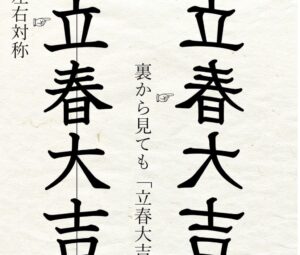 立春大吉
裏から見ても「立春大吉
立春大吉
左右対称